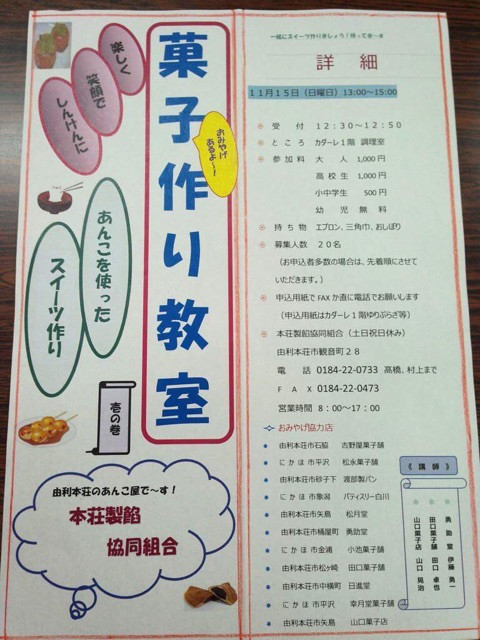 楽しく
笑顔で
しんけんに
菓子作り教室
おみやげ
あるよ～！
あんこを使った
スイーツ作り
壱の巻
由利本荘のあんこ屋で～す！
本荘製餡
協同組合
一緒にスイーツ作りましょう！待ってま～す
詳 細
１１月１５日（日曜日）13:00～15:00
受 付 １２：３０～１２：５０
ところ カダーレ１階 調理室
参加料 大 人 1,000円
高校生 1,000円
小中学生 500円
幼 児 無 料
持ち物 エプロン、三角巾、おしぼり
募集人数 ２０名
（お申込者多数の場合は、先着順にさせて
いただきます。）
申込用紙でFAXか直に電話でお願いします
（申込用紙はカダーレ１階ゆりぷらざ等）
本荘製餡協同組合（土日祝日休み）
由利本荘市観音町２８
電 話 0184-22-0733 高橋、村上まで
ＦＡＸ 0184-22-0473
営業時間 8：00～17：00
おみやげ協力店
由利本荘市石脇 古野屋菓子舗
にかほ市平沢 松永菓子舗
由利本荘市砂子下 渡部製パン
にかほ市象潟 パティスリー白川
由利本荘市矢島 松月堂
由利本荘市桶屋町 勇助堂
にかほ市金浦 小池菓子舗
由利本荘市松ヶ崎 田口菓子舗
由利本荘市中横町 日進堂
にかほ市平沢 幸月堂菓子舗
由利本荘市矢島 山口菓子店
《 講 師 》
勇助堂 伊藤 勇一
田口菓子舗 田口 卓也
山口菓子店 山口 晃治